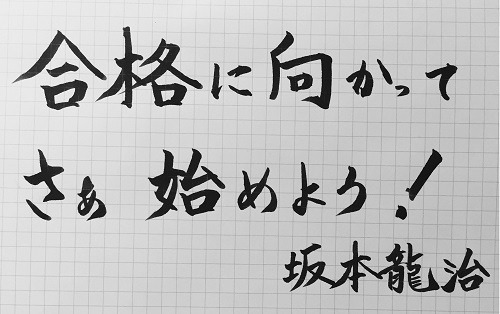 合格に向かって
さぁ 始めよう!
坂本龍治